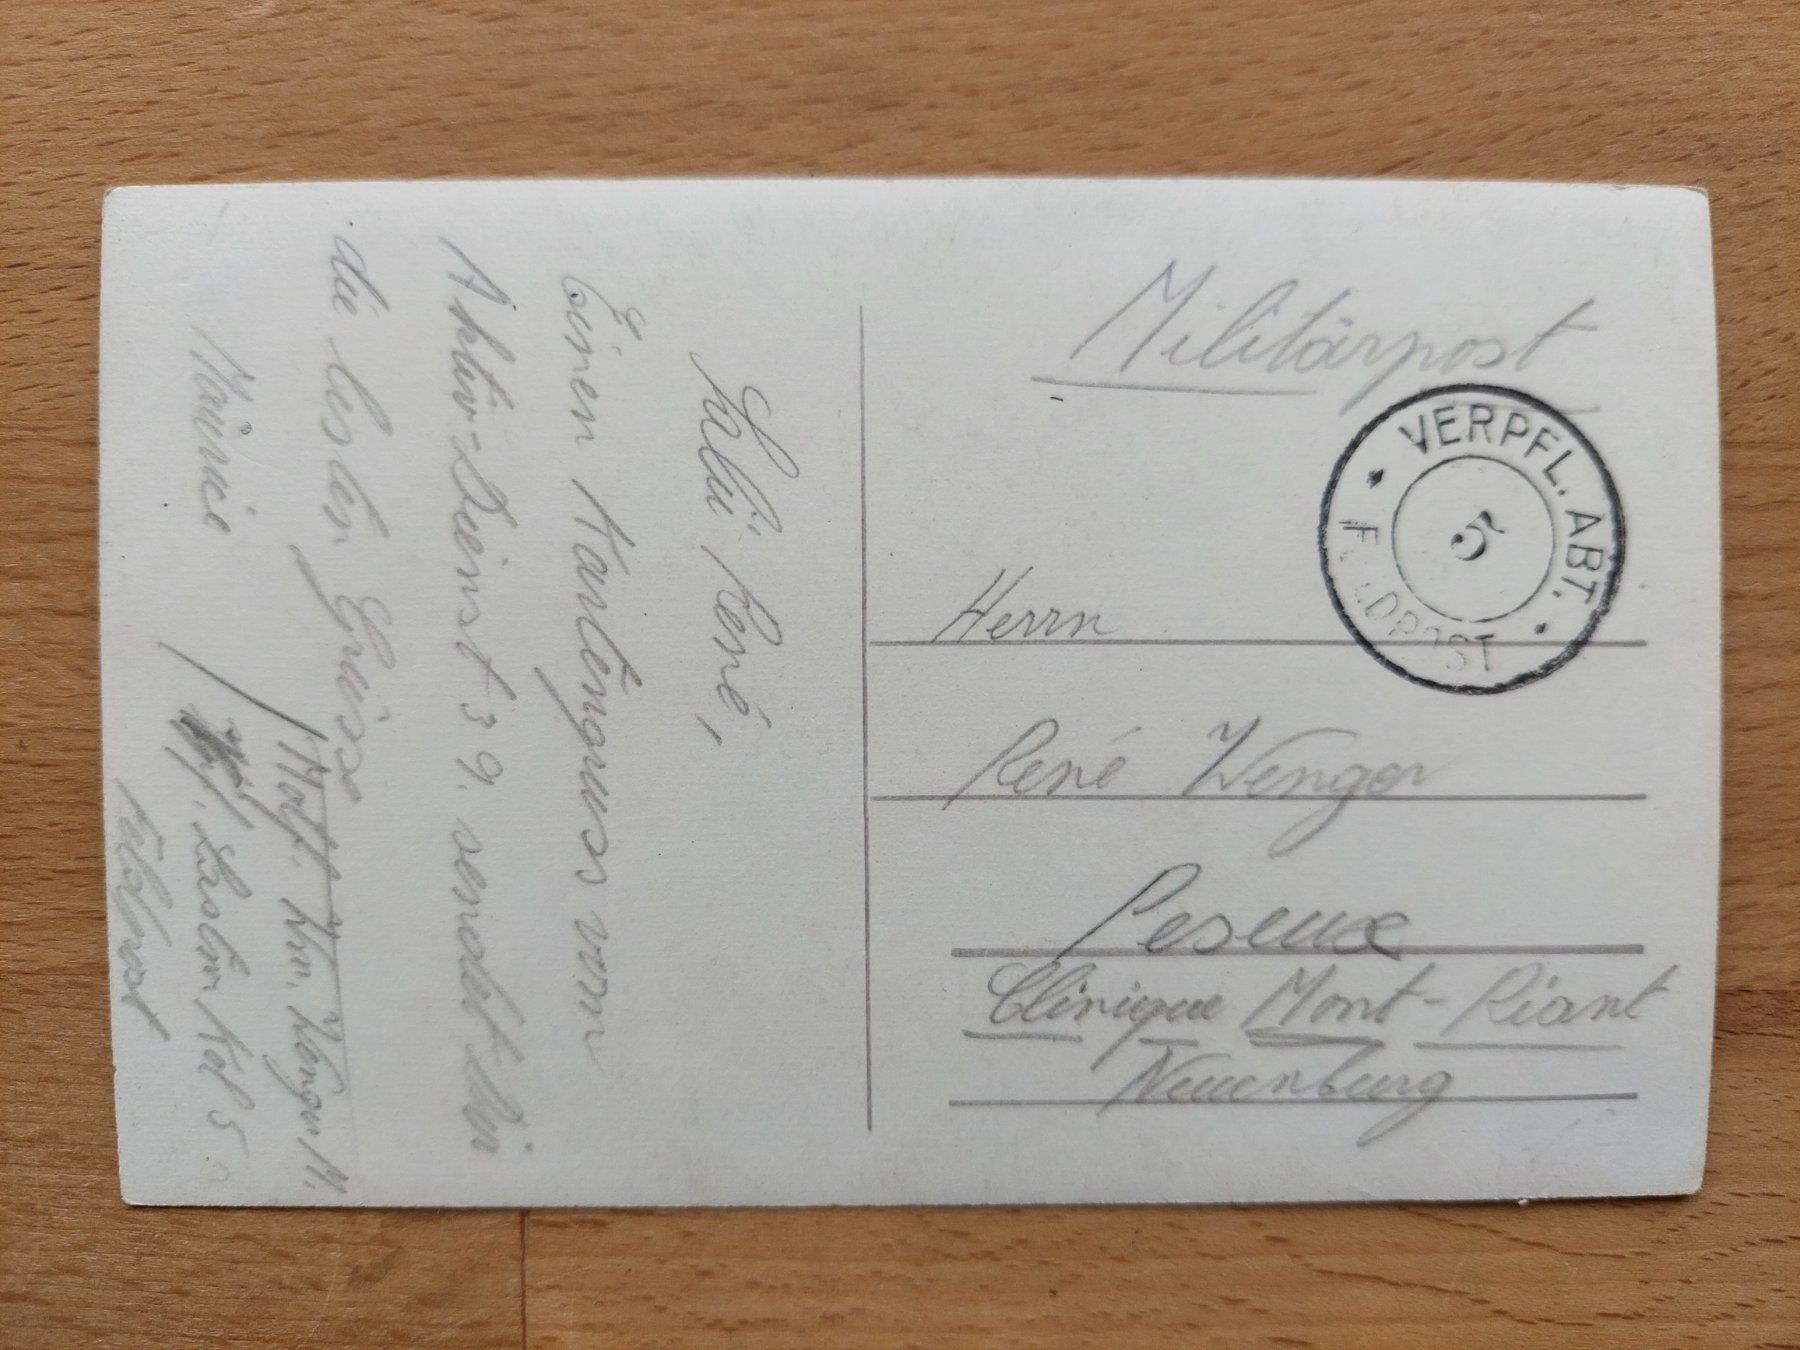 Salü René,
Einen Kartengruss vom
Aktiv-Dienst 39. sendet Dir
die besten Grüsse
Maurice
Motf. Kan. Wenger M.
Lastw. Kol 5
Feldpost
Militärpost
VERPFL. ABT.
5
FELDPOST
Herrn
René Wenger
Peseux
Clinique Mont-Riant
Neuenburg